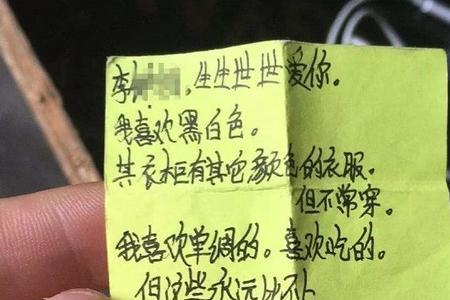 李，生生世世爱你。
我喜欢黑白色。
其衣柜有其它颜色的衣服。
但不常穿。
我喜欢单绸的。喜欢吃的。
但这些永远比不上